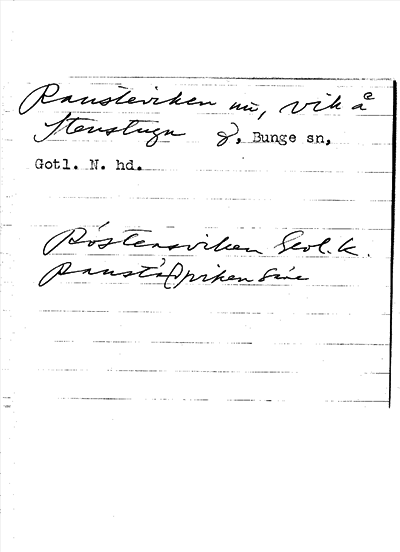 Rausteviken nu, vik å
Stenstugu g, Bunge sn,
Gotl. N. hd.
Röstensviken Geol. k.
Raustä()viken